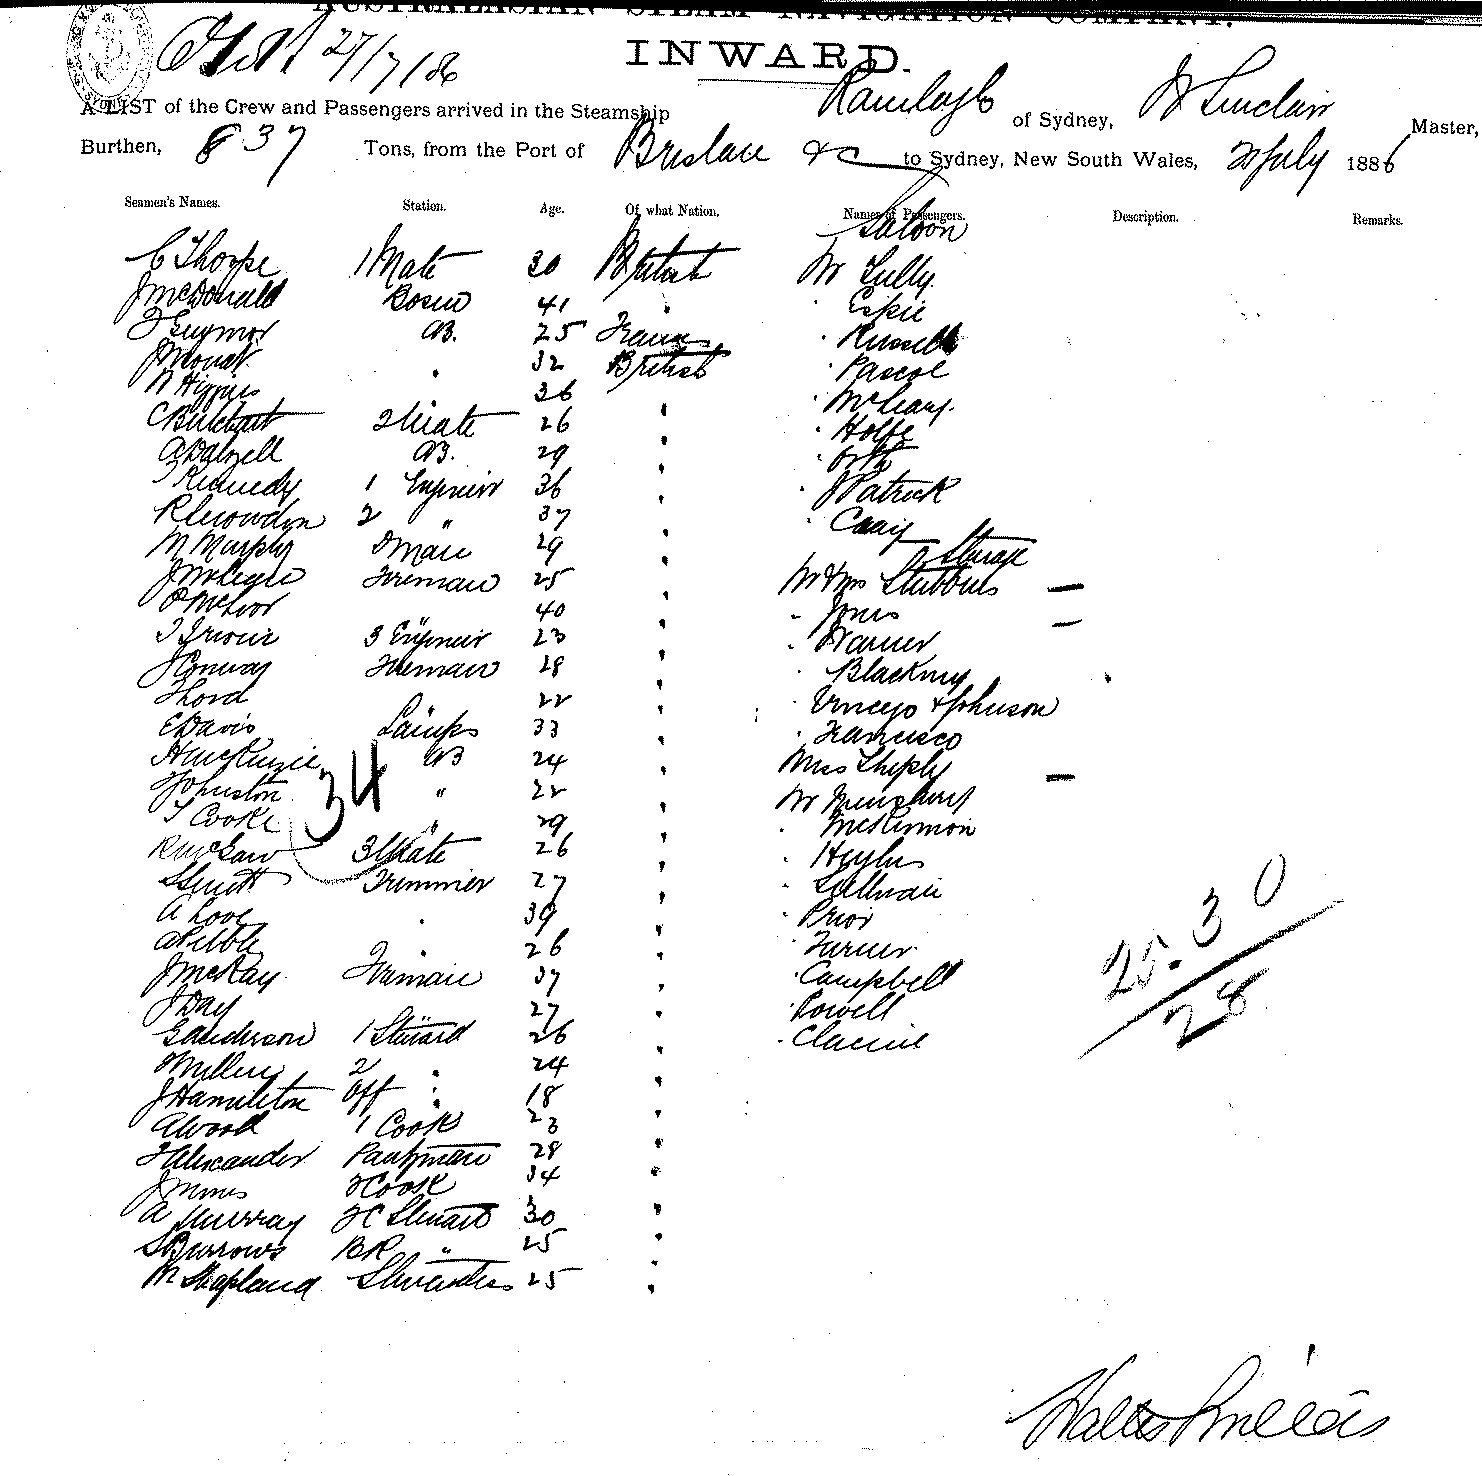 AUSTRALASIAN STEAM NAVIGATION COMPANY.
INWARD.
27/7/86
A LIST of the Crew and Passengers arrived in the Steamship Ranelagh of Sydney, W Sinclair Master,
Burthen, 837 Tons, from the Port of Brisbane &c to Sydney, New South Wales, 2 July 1886
Seamen's Names. Station. Age. Of what Nation. Names of Passengers. Description. Remarks.
Saloon
C Thorpe 1 Mate 30 British Mr Lully
J McDonald Bosun 41 " Espie
25 France " Russell
J Mouat " 32 British " Pascoe
W Higgins 36 "
26 " Holfe
A Dalzell AB. 29 "
T Kennedy 1 Engineer 36 " J Patrick
R Crowdon 2 " 37 " Craig
Steerage
M Murphy 29 " Mr & Mrs Stubbins —
Fireman 25 " Jones —
P McIvor 40 " Warner
3 Engineer 23 "
J Conway Fireman 28 " & Johnson
T Lord 22 " Francisco
E Davis Lamps 33 " Miss Shiply —
H McKenzie AB 24 " Mr
Johnston " 22 " McKinnon
T Cooke " 29 "
34
3 Mate 26 " Sullivan
S Smith Trimmer 27 " Prior
A Love " 39 " Turner
26 " Campbell
J McKay Fireman 37 " Powell
J Day 27 "
G Anderson 1 Steward 26 "
Miller 2 " 24 "
J Hamilton Off " 18 "
A Wood 1 Cook 23 "
T Alexander Pantryman 28 "
J Mims 2 Cook 34 "
A Murray 2C Steward 30 "
S Burrows BR " 25 "
M Shapland Stewardess 25 "
25. 30
28